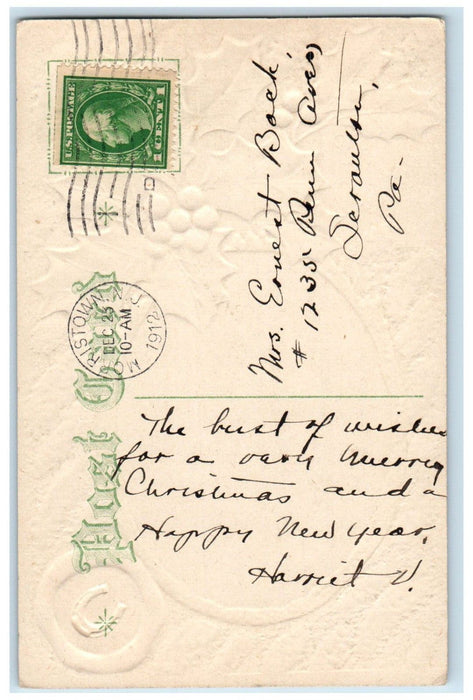 Post Card
U.S. POSTAGE
1 CENT 1
MORRISTOWN, N.J.
DEC 23
10-AM
1912
Mrs. Ernest Back,
# 1235 Penn Ave,
Scranton,
Pa.
The best of wishes
for a very Merry
Christmas and a
Happy New Year.
Harriet V.